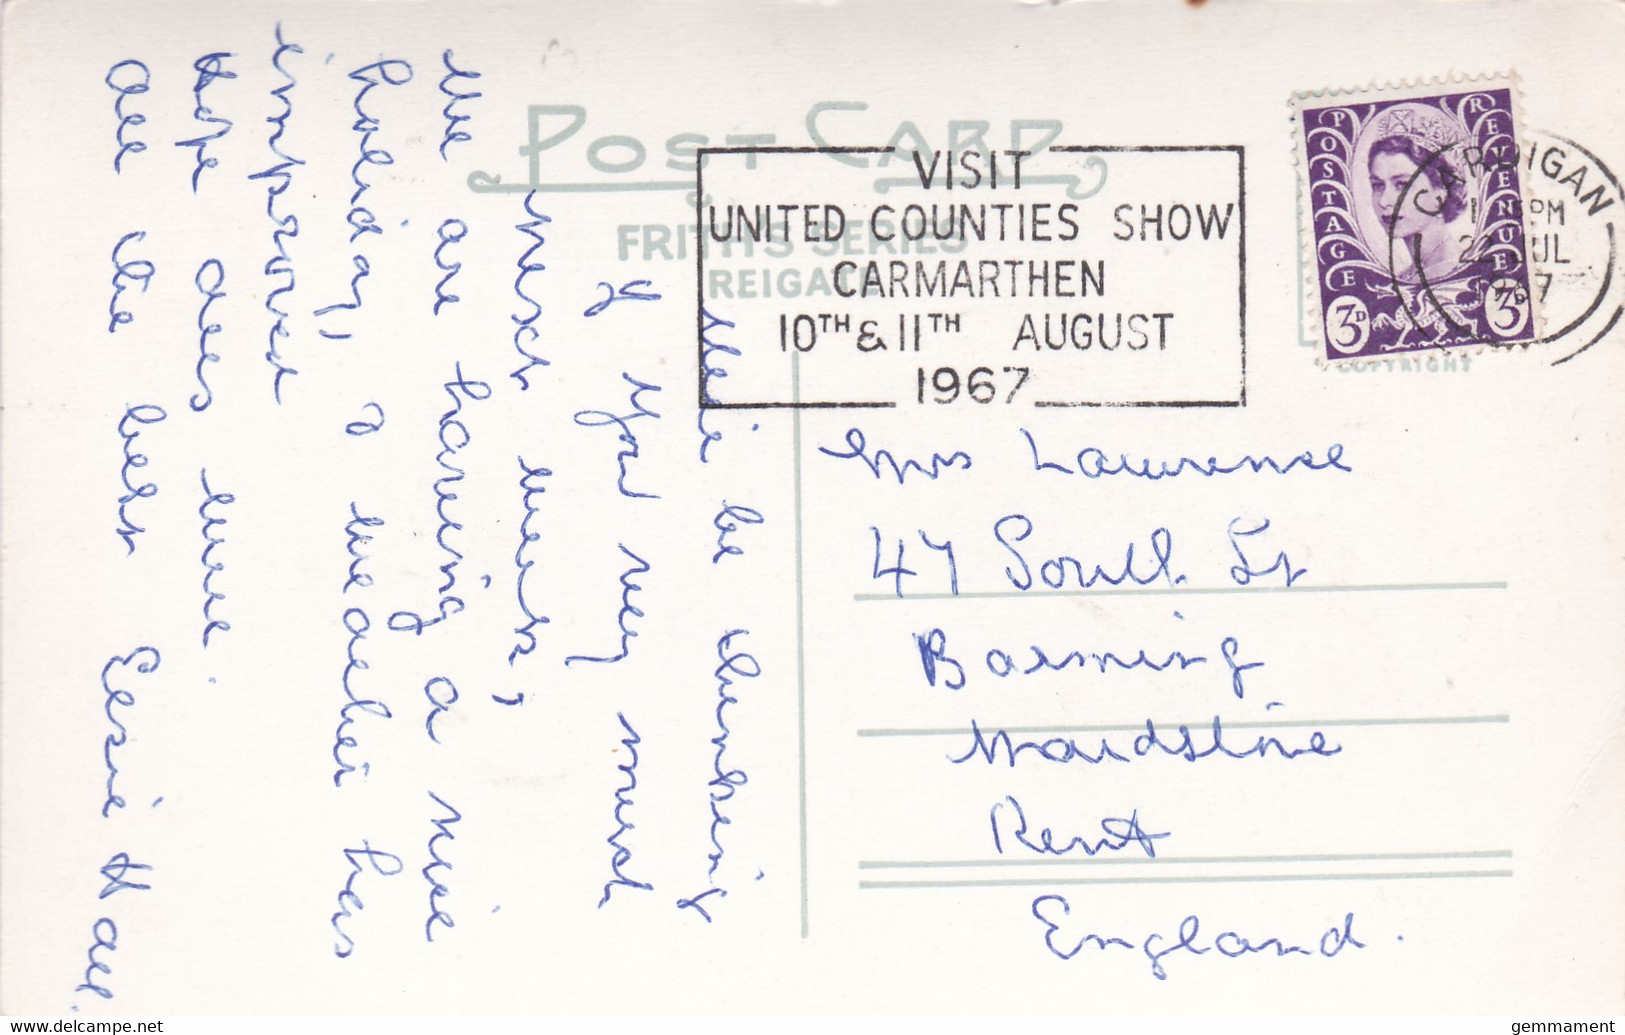 POST CARD
FRITH'S SERIES
REIGATE
VISIT
UNITED COUNTIES SHOW
CARMARTHEN
10TH & 11TH AUGUST
1967
CARDIGAN
PM
22 JUL
1967
POSTAGE REVENUE
3D 3D
COPYRIGHT
Mrs Lawrence
47 South St
Barming
Maidstone
Kent
England.
be thinking
of you very much
next week,
We are having a nice
holiday, & weather has
improved
Hope all's well.
All the best Elsie Hall.
www.delcampe.net
gemmament